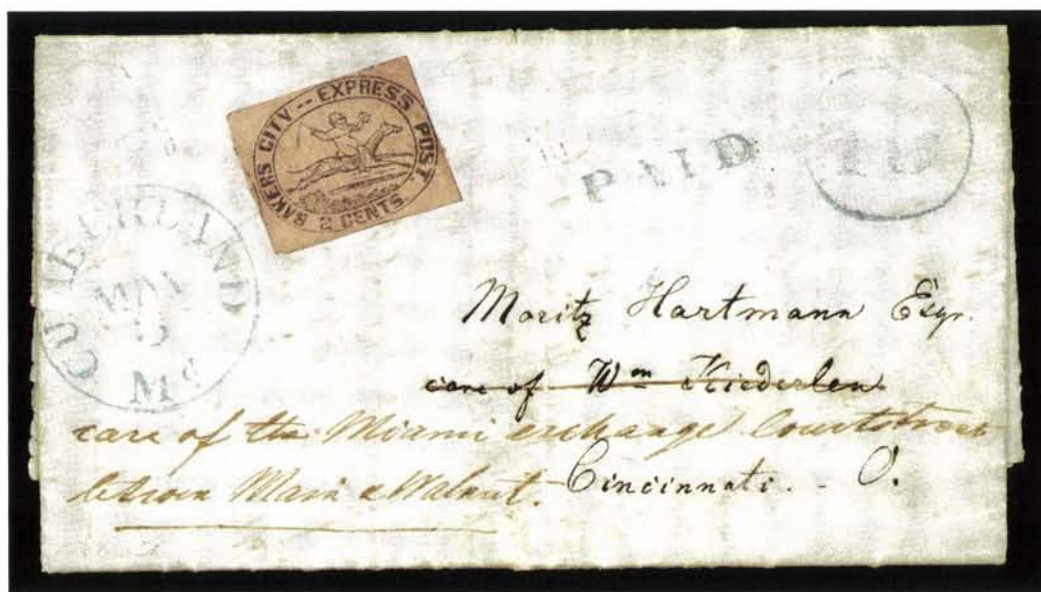 BAKERS CITY -- EXPRESS POST
2 CENTS.
PAID
10
CUMBERLAND
MAY
Md
Moritz Hartmann Esqr.
care of Wm Kiederlen
care of the Miami exchange Courtstreet
between Main & Walnut.
Cincinnati. - O.